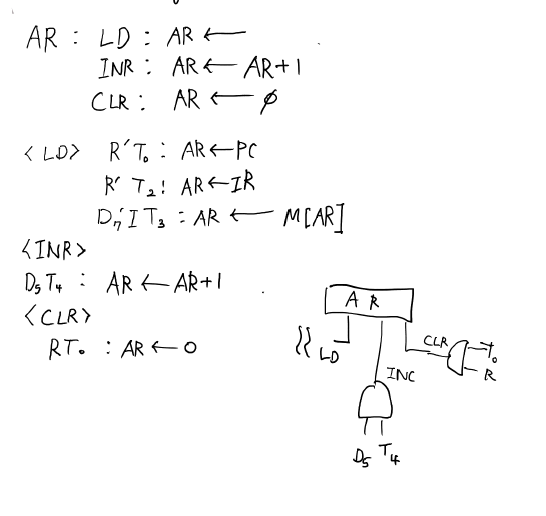 AR : LD : AR ←
INR : AR ← AR+1
CLR : AR ← ∅
<LD> R'T₀ : AR←PC
R' T₂ : AR←IR
D₇'I T₃ : AR ← M[AR]
<INR>
D₅T₄ : AR ← AR+1
<CLR>
RT₀ : AR ← 0
AR
LD
CLR
T₀
R
INC
D₅ T₄